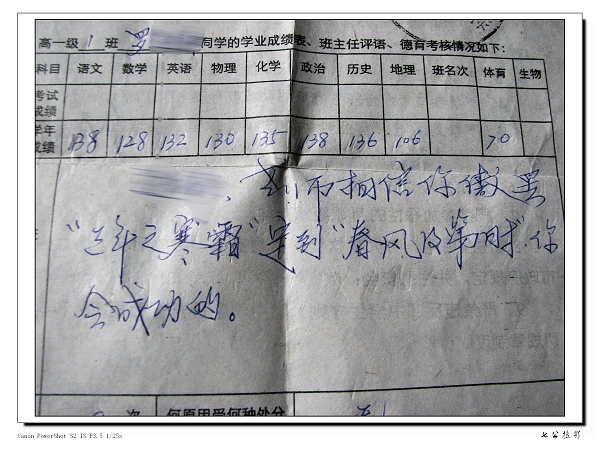 高一级 1 班 罗 同学的学业成绩表、班主任评语、德育考核情况如下：
科目 语文 数学 英语 物理 化学 政治 历史 地理 班名次 体育 生物
考试成绩
学年成绩 138 128 132 130 135 138 136 106 70
相信你
"三年之寒霜" "春风 时" 你
会成功的。
次 何原因受何种处分
Canon PowerShot S2 IS F3.5 1/25s
七公摄影